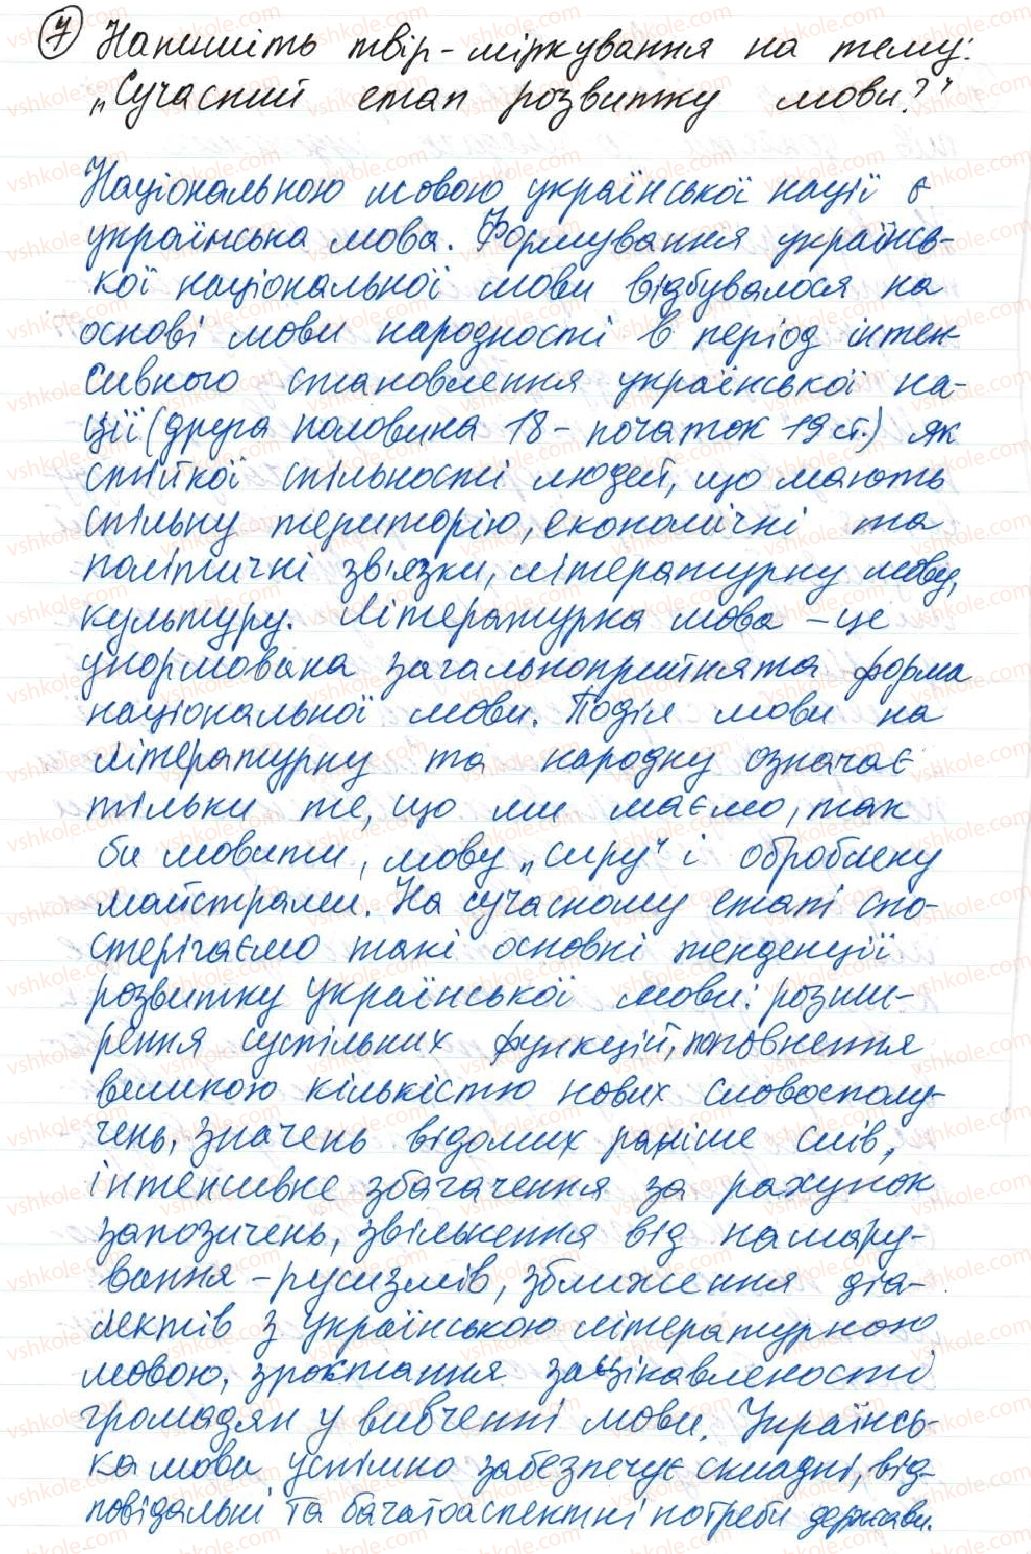 7 Напишіть твір-міркування на тему:
„Сучасний етап розвитку мови?"
Національною мовою української нації є
українська мова. Формування українсь-
кої національної мови відбувалося на
основі мови народності в період інтен-
сивного становлення української на-
ції (друга половина 18 - початок 19 ст.) як
стійкої спільності людей, що мають
спільну територію, економічні та
політичні зв'язки, літературну мову,
культуру. Літературна мова - це
унормована загальноприйнята форма
національної мови. Поділ мови на
літературну та народну означає
тільки те, що ми маємо, так
би мовити, мову „сиру" і оброблену
майстрами. На сучасному етапі спо-
стерігаємо такі основні тенденції
розвитку української мови: розши-
рення суспільних функцій, поповнення
великою кількістю нових словосполу-
чень, значень відомих раніше слів,
інтенсивне збагачення за рахунок
запозичень, звільнення від нашару-
вання - русизмів, зближення діа-
лектів з українською літературною
мовою, зростання зацікавленості
громадян у вивченні мови. Українсь-
ка мова успішно забезпечує складні, від-
повідальні та багатоаспектні потреби держави.